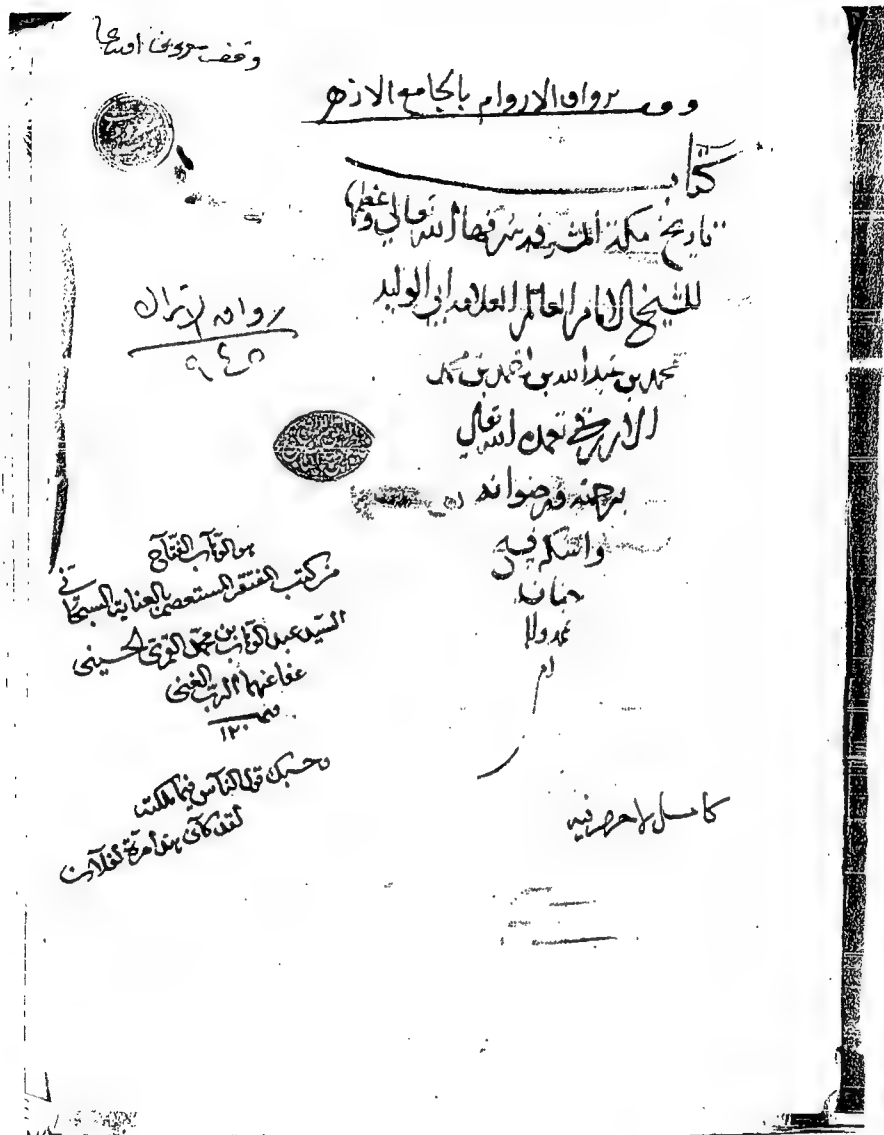 وقف
وقف برواق الاروام بالجامع الازهر
كتاب
تاريخ مكة المشرفة شرفها الله تعالي وعظمها
للشيخ الامام العالم العلامة ابي الوليد
محمد بن عبد الله بن احمد بن محمد
الازرقي تغمده الله تعالي
برحمته ورضوانه
واسكنه فسيح
جنانه
رواق الاتراك
٩٤٥
هو الوهاب الفتاح
من كتب الفقير المستعصم بالعناية السبحاني
السيد عبد الوهاب بن محمد القوي الحسيني
عفا عنهما الرب الغني
وحسبك قول الناس فيما ملكته
لقد كان هذا مرة لفلان
كامل
فيه